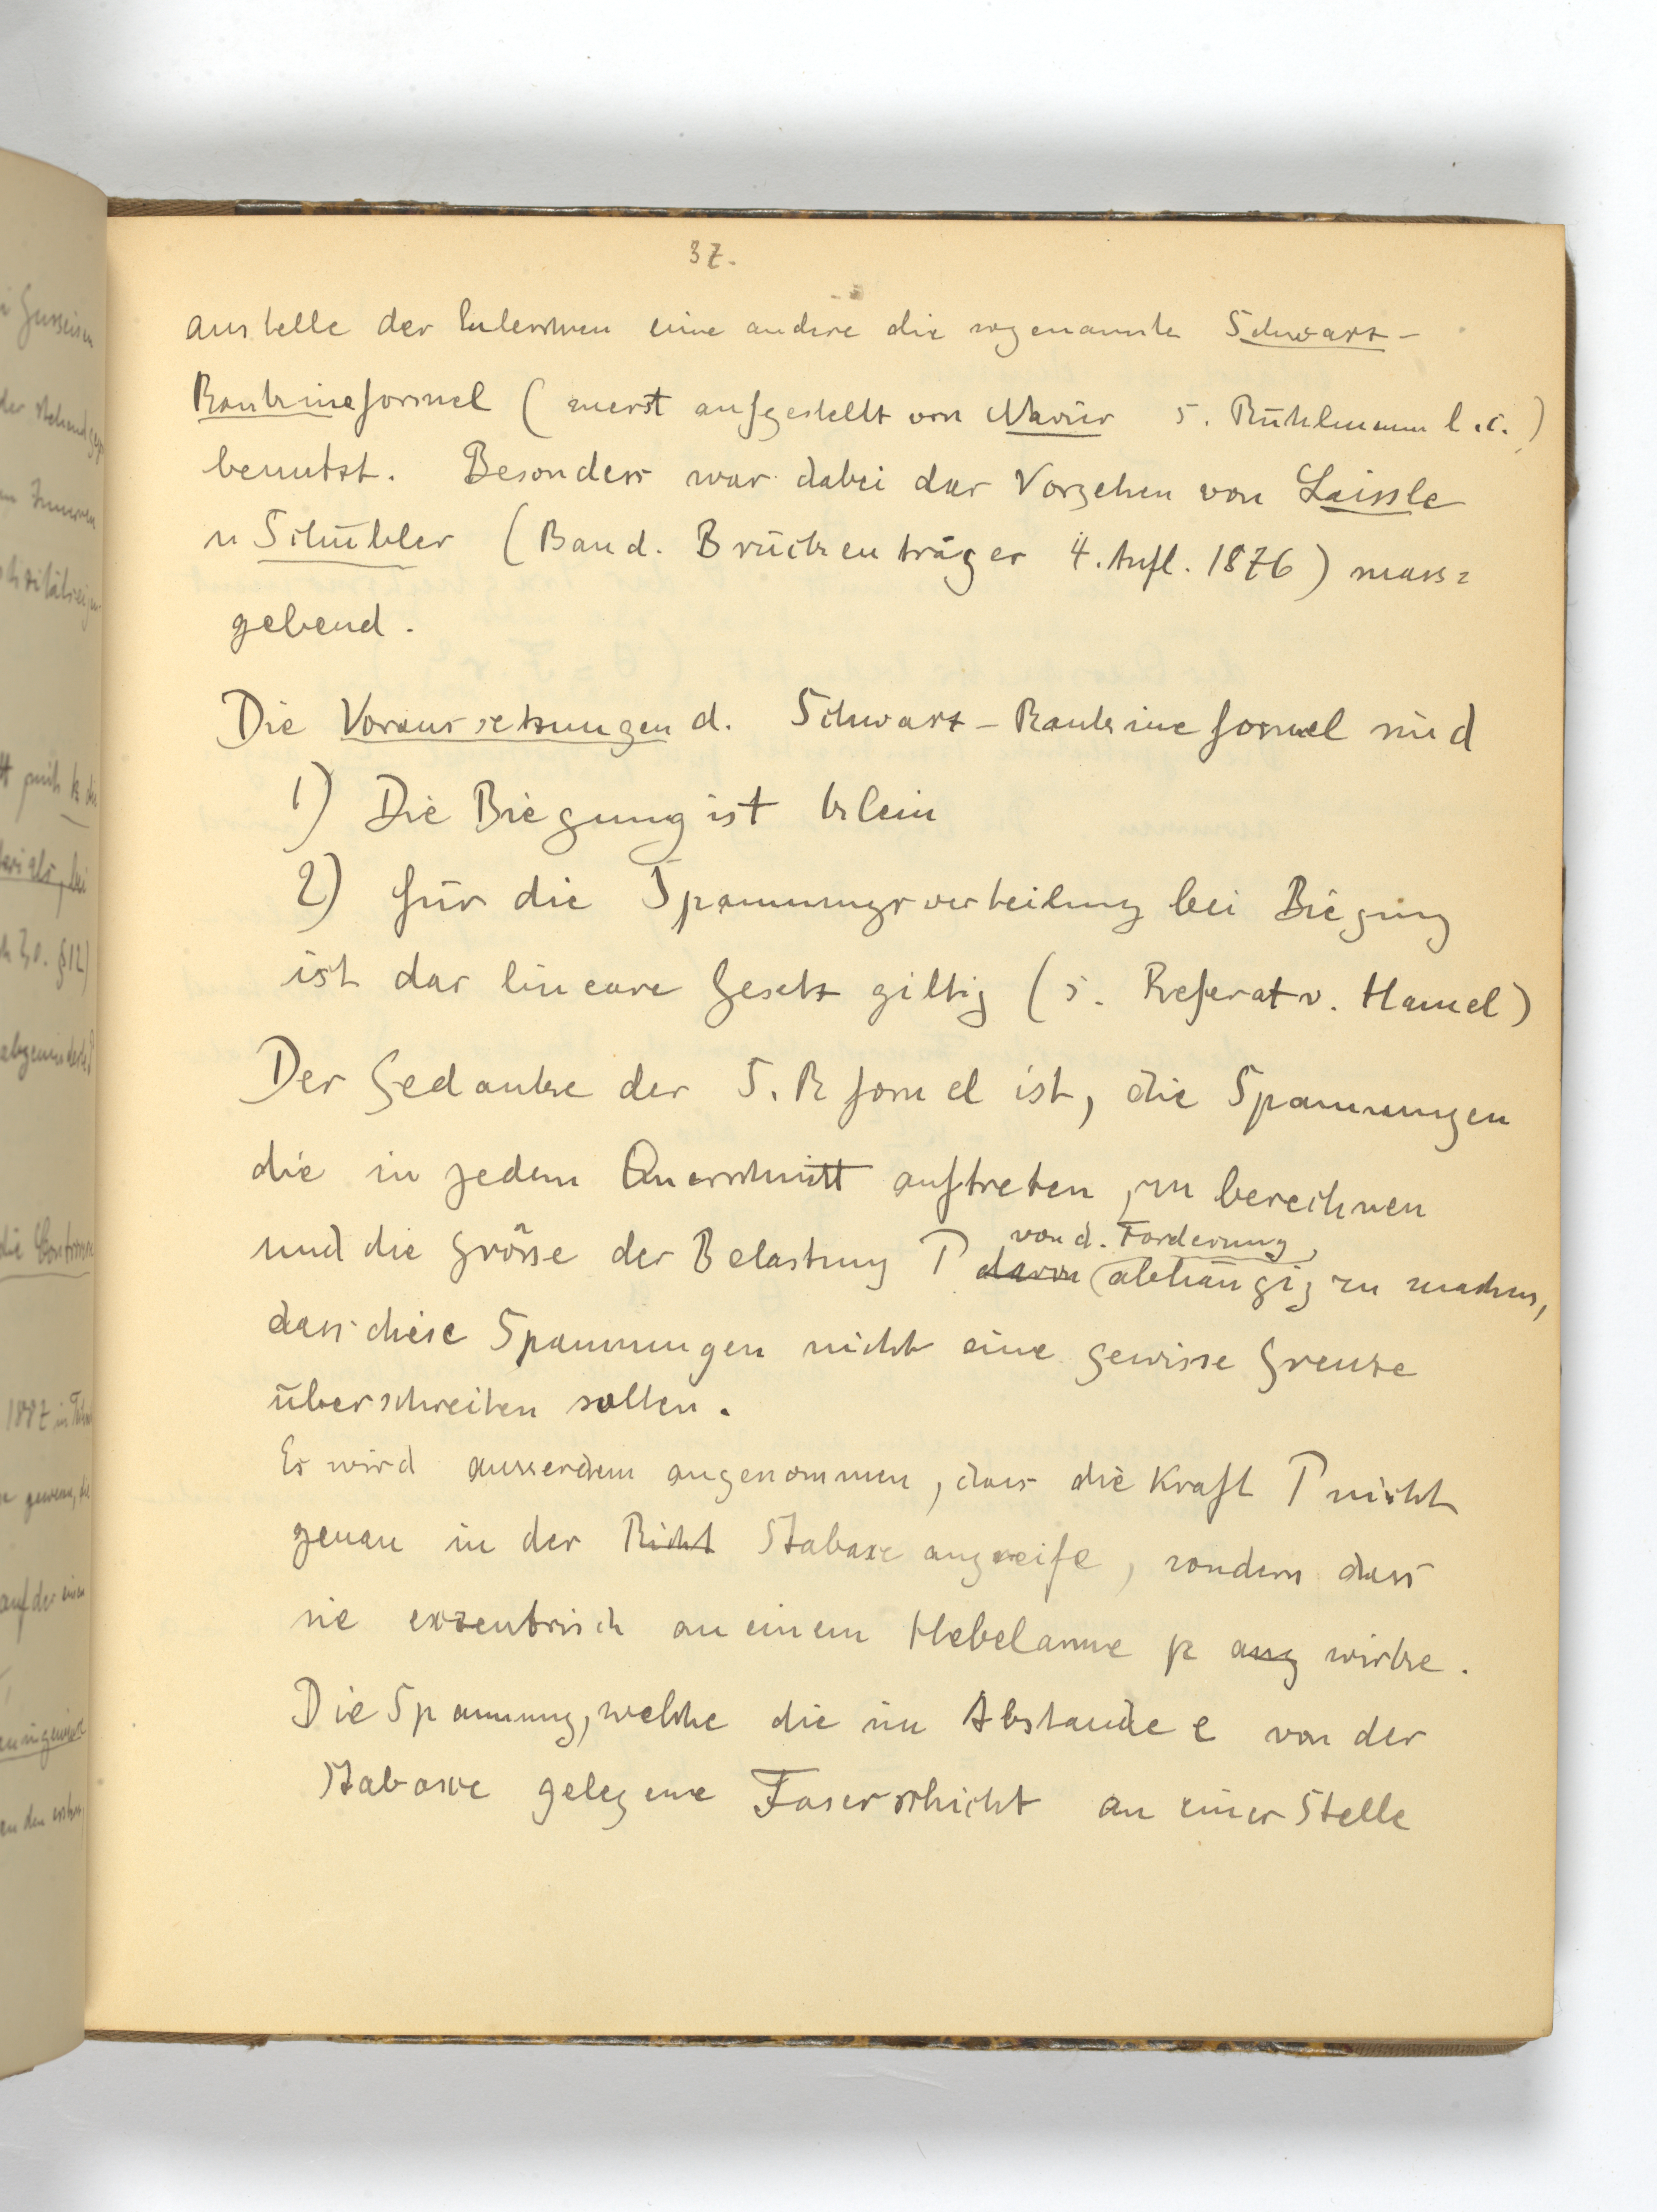 37.
anstelle der Eulerschen eine andere die sogenannte Schwarz-
Rankineformel (zuerst aufgestellt von Navier s. Rühlmann l.c.)
benutzt. Besonders war dabei das Vorgehen von Laissle
u Schübler (Band. Brückenträger 4. Aufl. 1876) mass=
gebend.
Die Voraussetzungen d. Schwarz-Rankineformel sind
1) Die Biegung ist klein
2) für die Spannungsverteilung bei Biegung
ist das lineare Gesetz giltig (s. Referat v. Hamel)
Der Gedanke der S.R formel ist, die Spannungen
die in jedem Querschnitt auftreten, zu berechnen
von d. Forderung,
und die Grösse der Belastung P davon abhängig zu machen,
dass diese Spannungen nicht eine gewisse Grenze
überschreiten sollen.
Es wird ausserdem angenommen, dass die Kraft P nicht
genau in der Richt Stabaxe angreife, sondern dass
sie exzentrisch an einem Hebelarme p ang wirke.
Die Spannung, welche die im Abstande e von der
Stabaxe gelegene Faserschicht an einer Stelle
1887 in
auf der einen